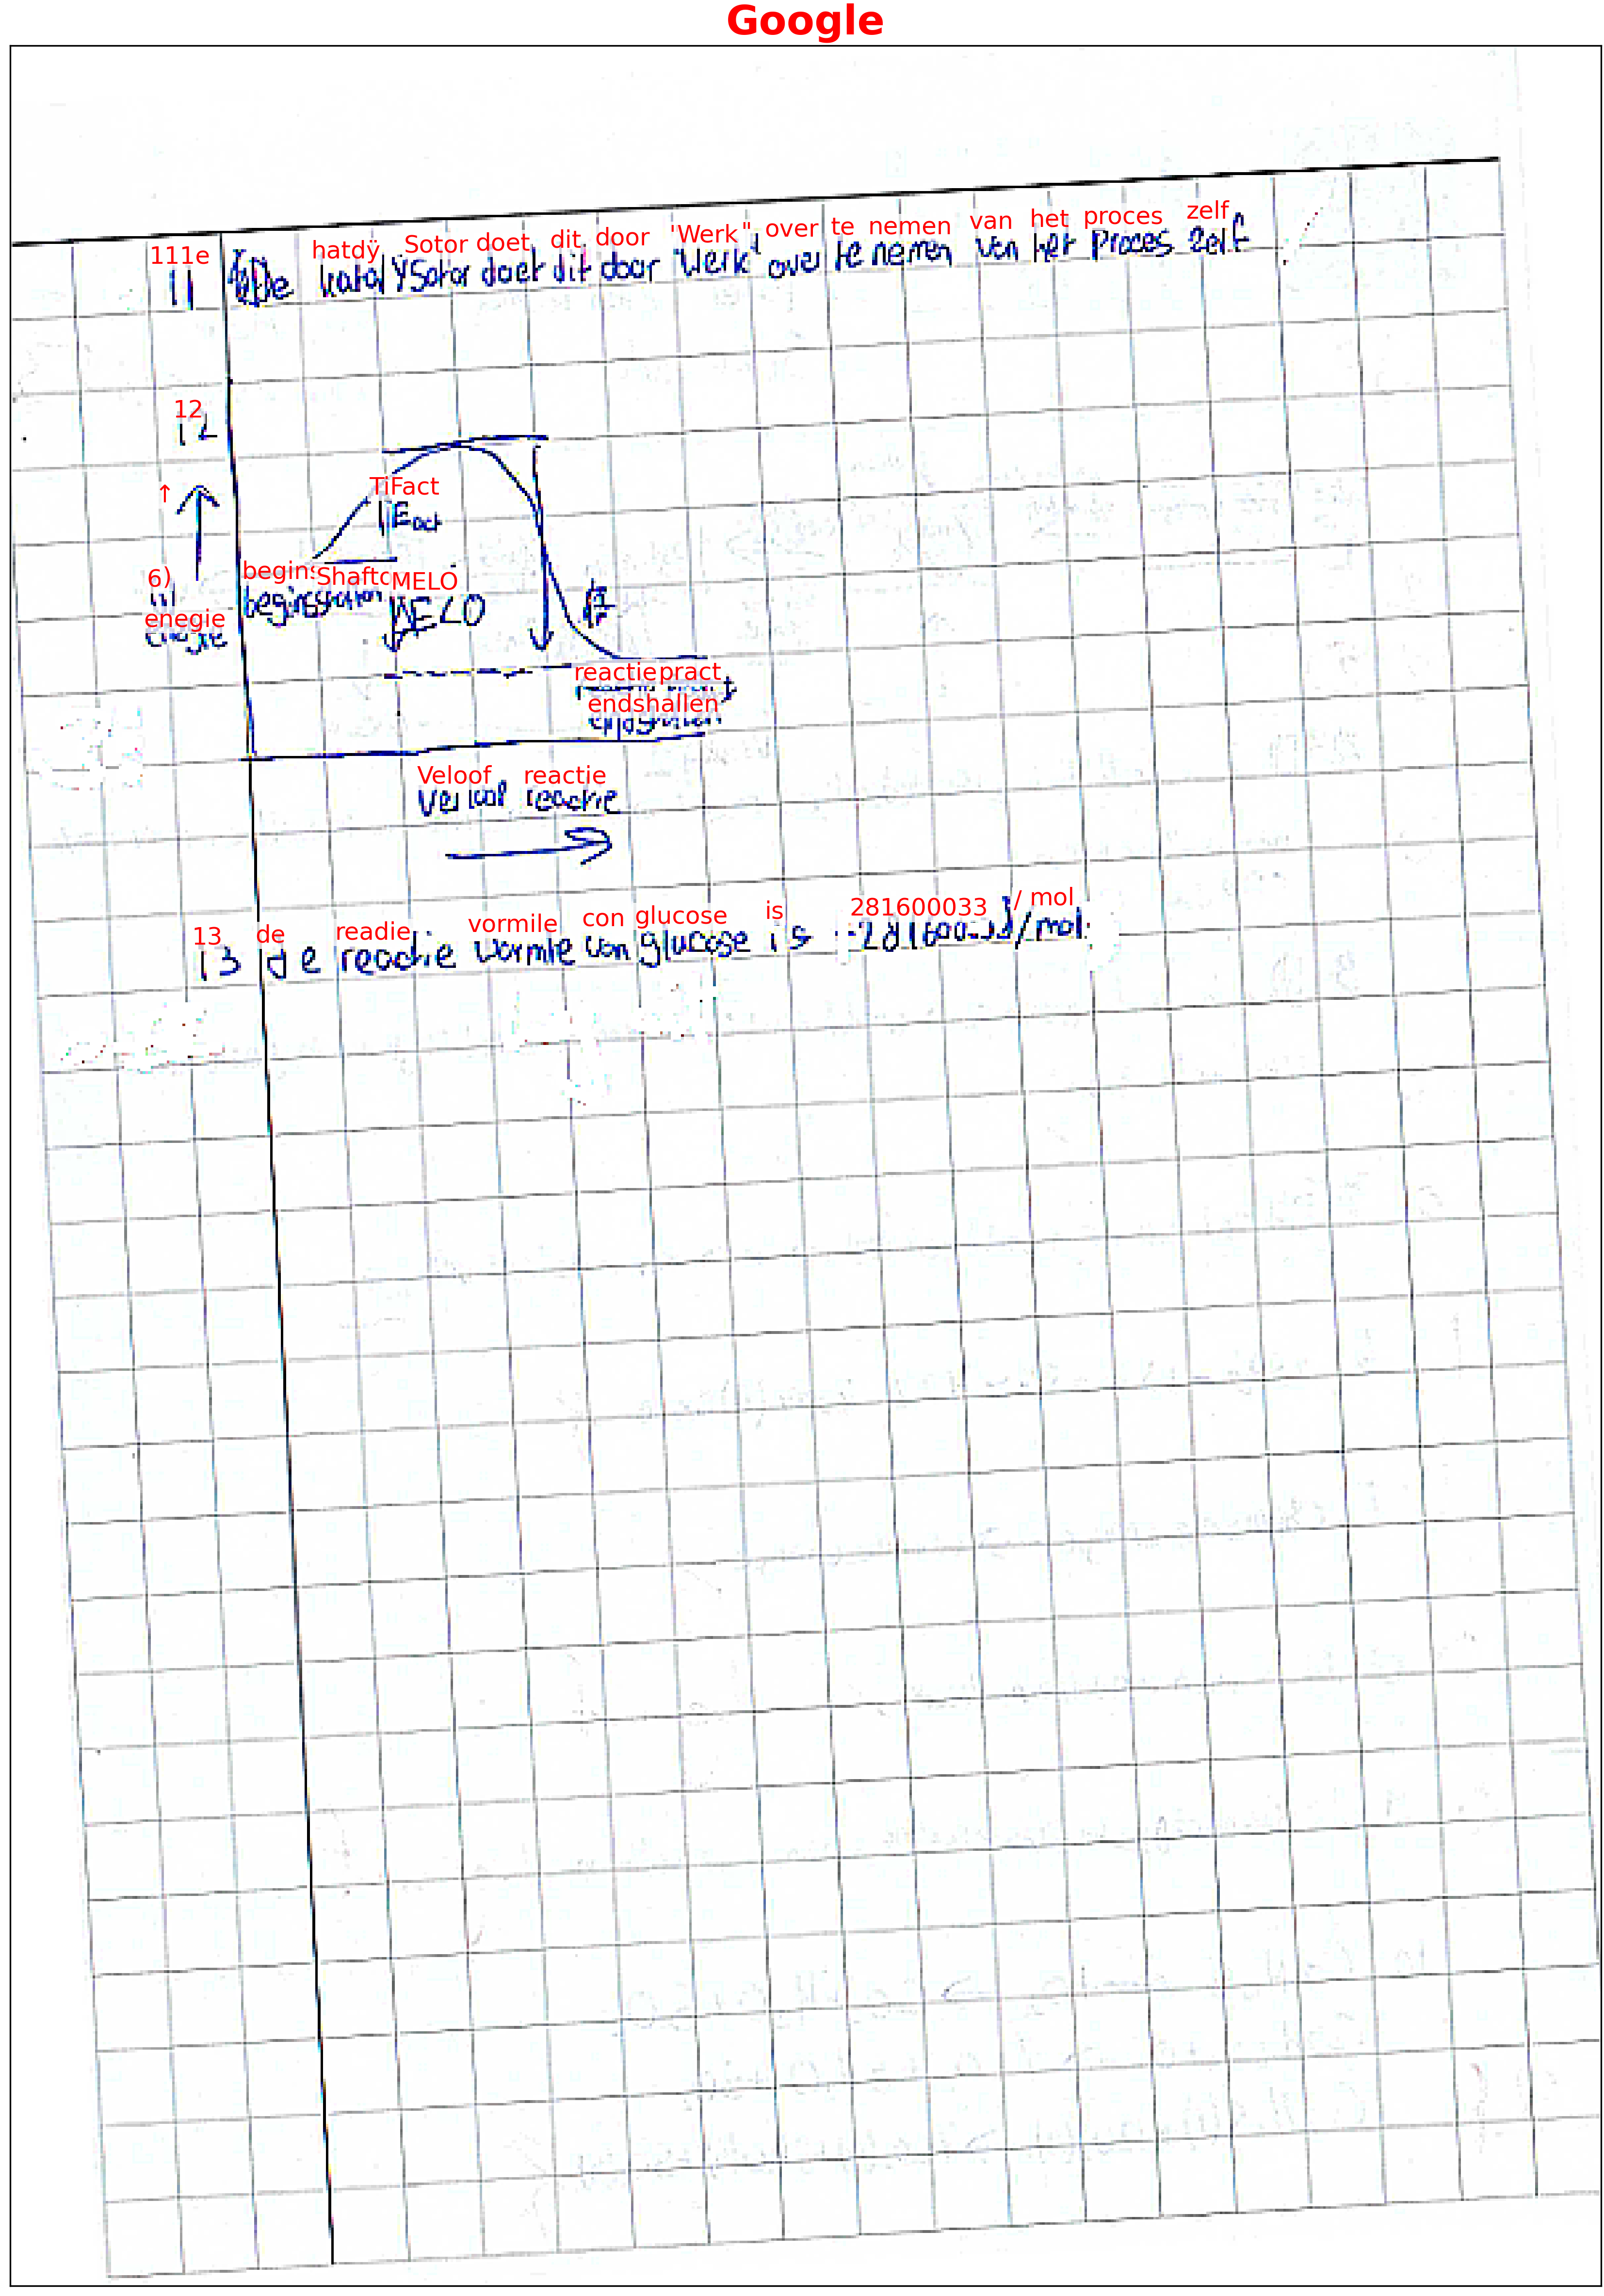 Google
111e hatdÿ Sotor doet dit door 'Werk" over te nemen van het proces zelf
11 De katalysator doet dit door "Werk" over te nemen van het proces zelf
12
12
TiFact
Eact
↑
6)
begins Shafto MELO
beginsstoffen ΔE<0
enegie
enegie
reactie pract
endshallen
Veloof reactie
Verloop reactie
13 de readie vormile con glucose is 281600033 / mol
13 de reactie wormte van glucose is -2816000J/mol